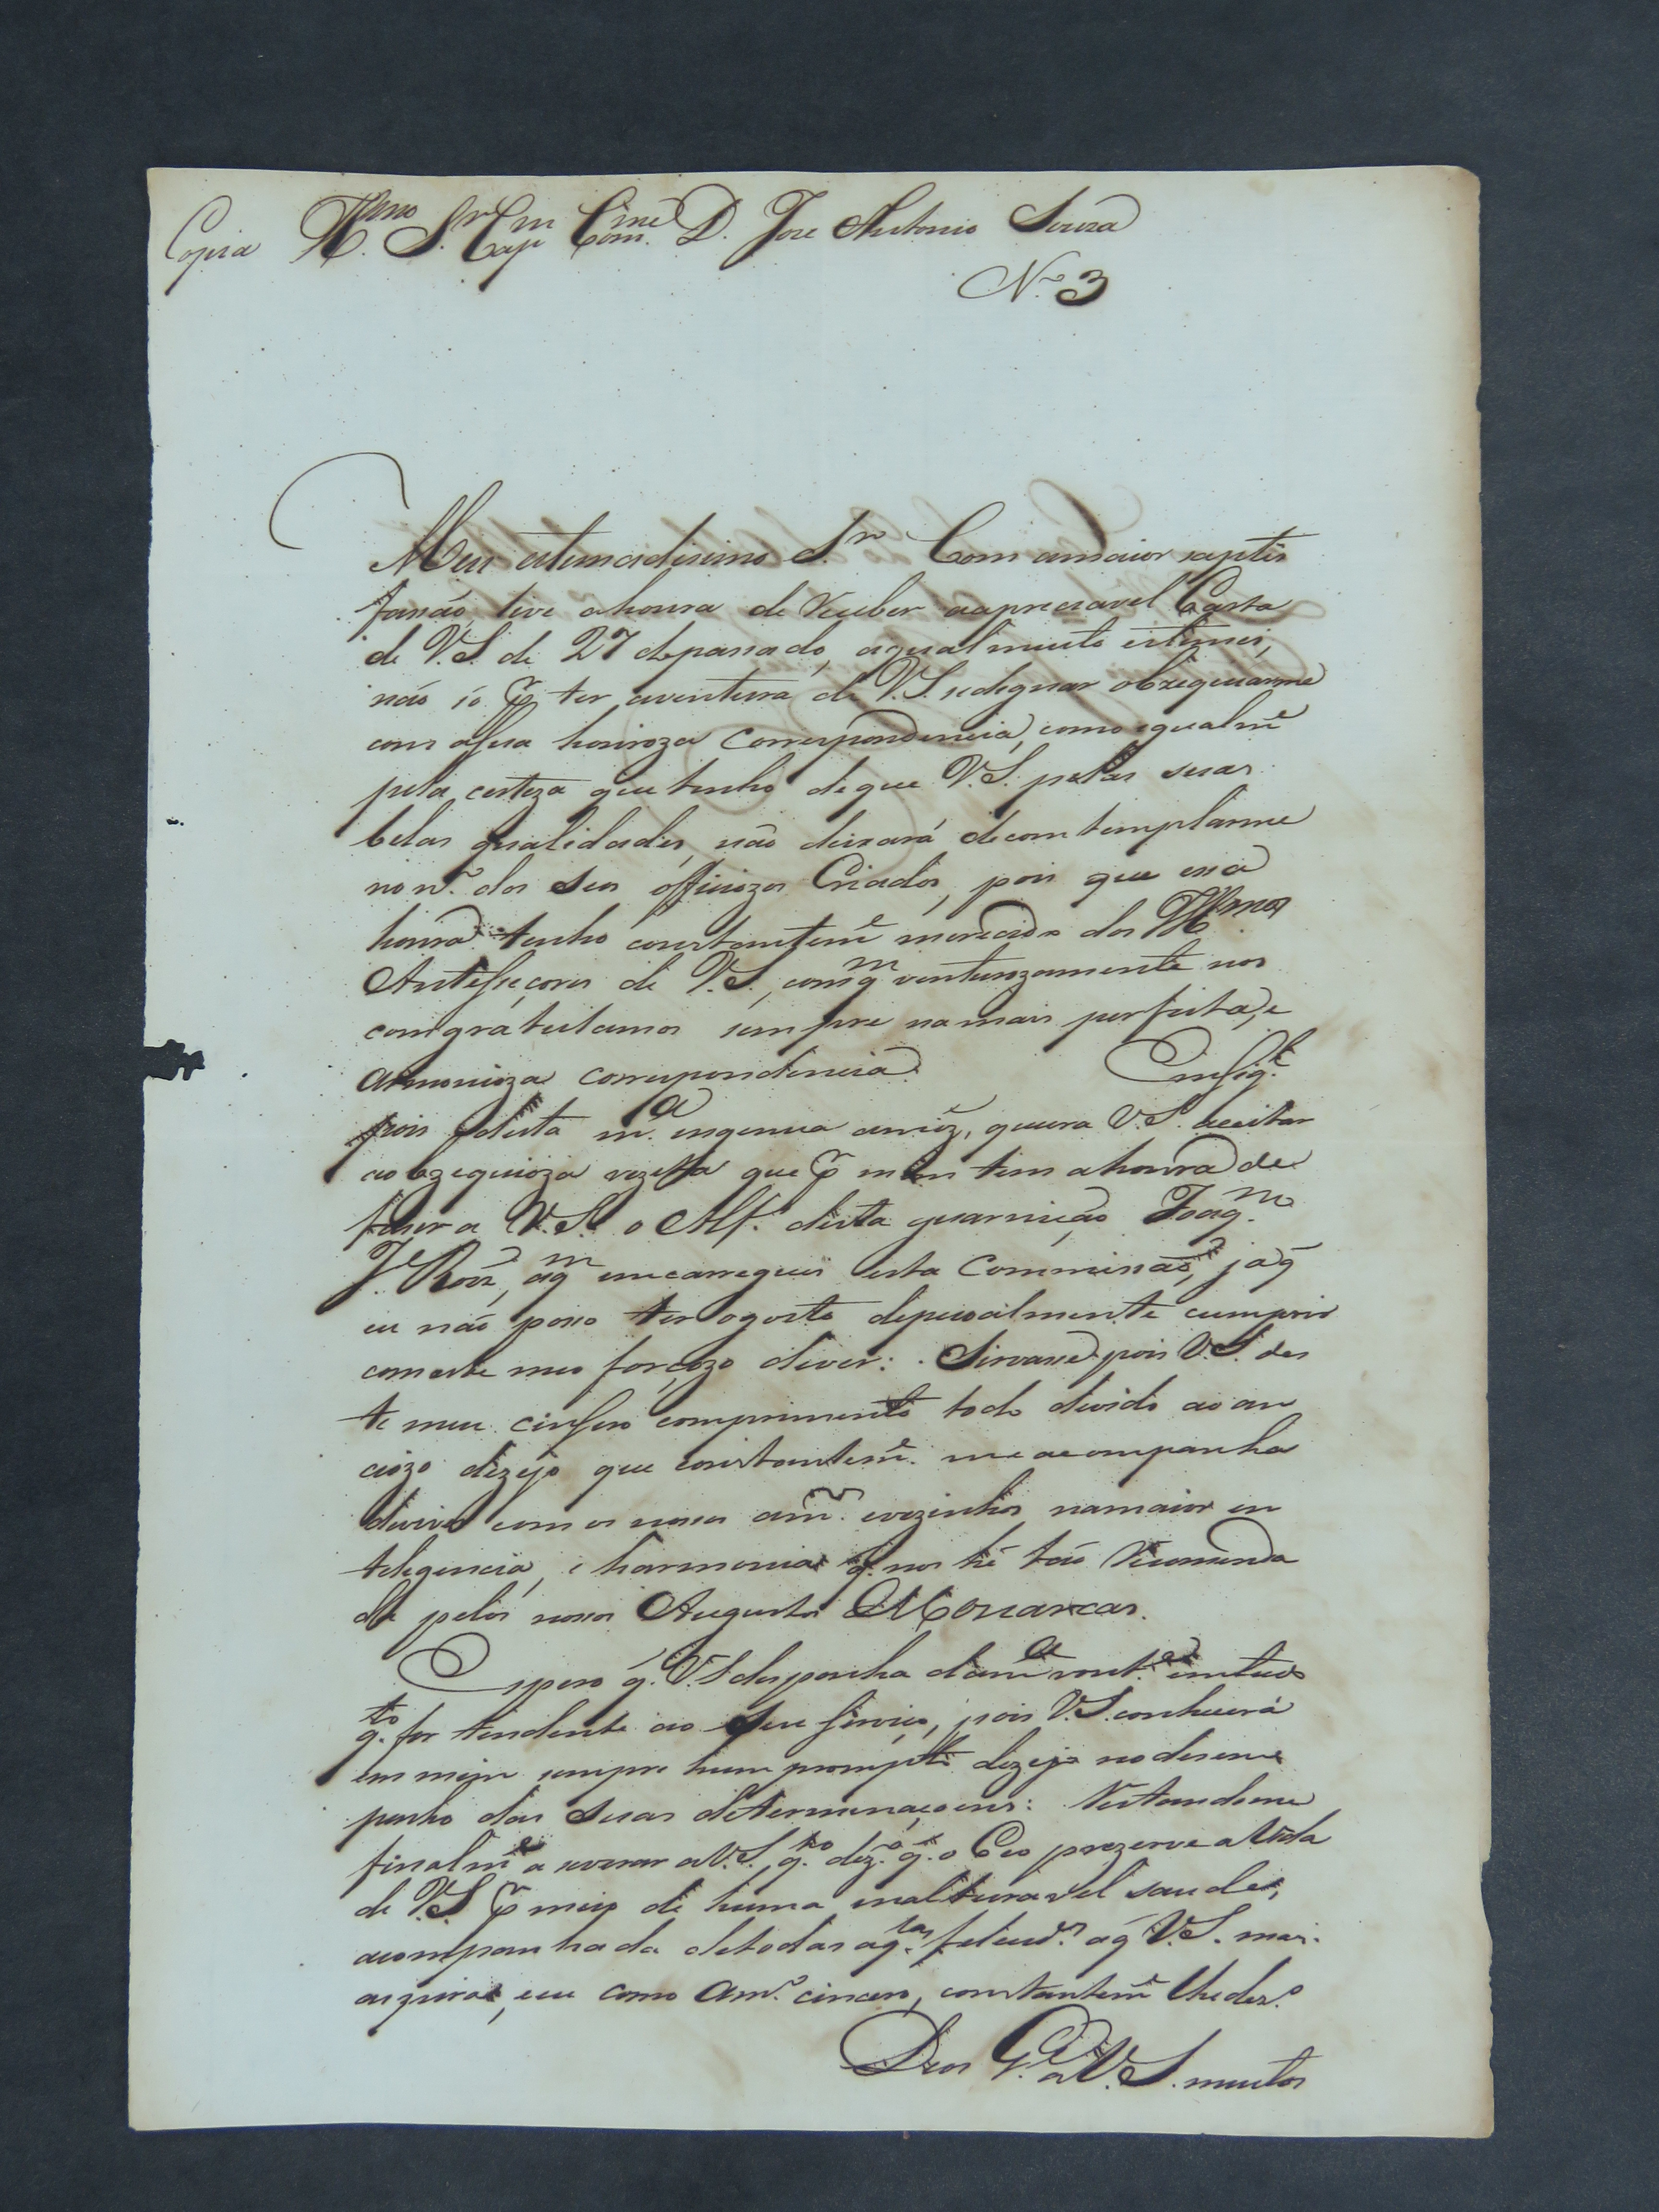 Copia Ill.mo S.r Cap.m Com.me D. Joze Antonio Souza
N.o 3
Meu estimadissimo S.r Com amaior saptis
fasão, tive ahonra de receber aapreciavel Carta
de V.S. de 27 depassado, aqual muito estimei,
não só p.r ter aventura de V.S. sedignar obzequiarme
com asua honroza Correspondencia, como igualm.e
pela certeza que tenho deque V.S. pelas suas
belas qualidades, não deixará decomtemplarme
no n.o dos seus officiozos Criados, pois que essa
honra tenho constantem.e merecido dos Ill.mos
Antesseçores de V.S., comq.m venturozamente nos
congratulamos sempre namais perfeita, e
armonioza correspondencia. Emsig.e
pois desta m.a ingenua amiz.e, queira V.S. aceitar
aobzequioza vezita que p.r mim tem ahonra de
fazer a V.S. o Alf.s desta guarnição Joaq.m
J.e Roiz, aq.m emcarreguei esta Commissaõ, jaq̃
eu não posso ter ogosto depesoalmente cumprir
comeste meu forçozo dever: Sirvase pois V.S. des
te meu cinsero comprimento todo devido aoan
ciozo dezejo que constantem.e me acompanha
deviver com os nossos am.os evezinhos namaior in
teligencia, e harmonia q̃ nos hé taõ recomenda
da pelos nossos Augustos Monarcas.
Espero q̃ V.S. disponha dam.a vont.e emtudo
q.to for tendente ao Seu Serviço, pois V.S. conhecerá
em mim sempre hum prompto dezejo nodesem
penho das Suas determinaçoens: Restandome
finalm.e a severar aV.S. q.to dez.o q̃ o Ceo prezerve aVida
de V.S. p.r meio de huma inalteravel saude,
acompanhada detodas aq.tas felicid.es aq̃ V.S. mais
aspirar, eeu como Am.o cincero, constantem.e lhedez.o
Deos G.e a V.S. muitos